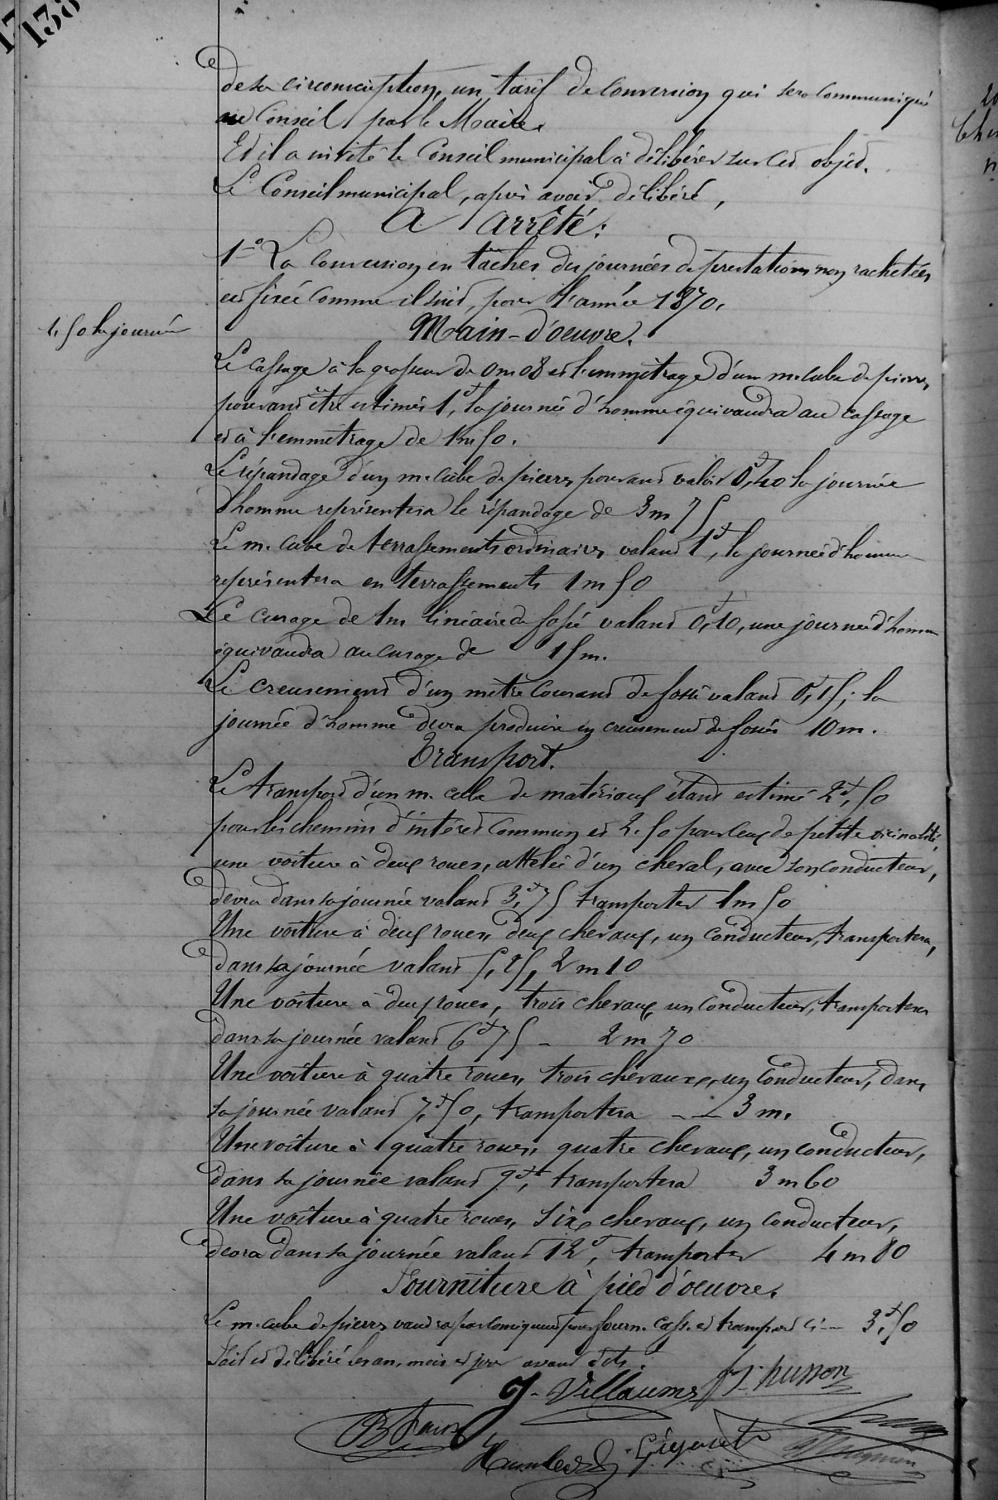 138
de sa circonscription, un tarif de conversion qui sera communiqué
au Conseil par le Maire.
Et il a invité le Conseil municipal à délibérer sur cet objet.
Le Conseil municipal, après avoir délibéré,
A arrêté:
1º La Conversion en tâches des journées de prestations non rachetées
est fixée comme il suit, pour l'année 1870.
1,50 la journée
Main-d'oeuvre.
Le cassage à la grosseur de 0m08 et l'emmétrage d'un m. cube de pierres
pouvant être estimés 1f, la journée d'homme équivaudra au cassage
et à l'emmétrage de 1m50.
Le répandage d'un m. cube de pierres pouvant valoir 0f,40 la journée
d'homme représentera le répandage de 3m75
Le m. cube de terrassements ordinaires valant 1f, la journée d'homme
représentera en terrassements 1m50
Le curage de 1m linéaire de fossé valant 0f,10, une journée d'homme
équivaudra au curage de 15m.
Le creusement d'un mètre courant de fossé valant 0f,15; la
journée d'homme devra produire en creusement de fossés 10m.
Transport.
Le transport d'un m. cube de matériaux étant estimé 2f,50
pour les chemins d'intérêt commun et 2.50 pour ceux de petite vicinalité,
une voiture à deux roues, attelée d'un cheval, avec son conducteur,
devra dans sa journée valant 3f,75 transporter 1m50
Une voiture à deux roues, deux chevaux, un conducteur, transportera,
dans sa journée valant 5,25, 2m10
Une voiture à deux roues, trois chevaux, un conducteur, transportera
dans sa journée valant 6f75 - 2m70
Une voiture à quatre roues, trois chevaux, un conducteur, dans
sa journée valant 7f,50, transportera - - 3m.
Une voiture à quatre roues, quatre chevaux, un conducteur,
dans sa journée valant 9f, transportera 3m60
Une voiture à quatre roues, six chevaux, un conducteur,
devra dans sa journée valant 12f, transporter 4m80
Fourniture à pied d'oeuvre.
Le m. cube de pierres vaudra par conséquent pour fourn. cass. et transport ci - 3f,50
Fait et délibéré les an, mois et jour avant dits.
J. Villaume J. Husson
Humbert